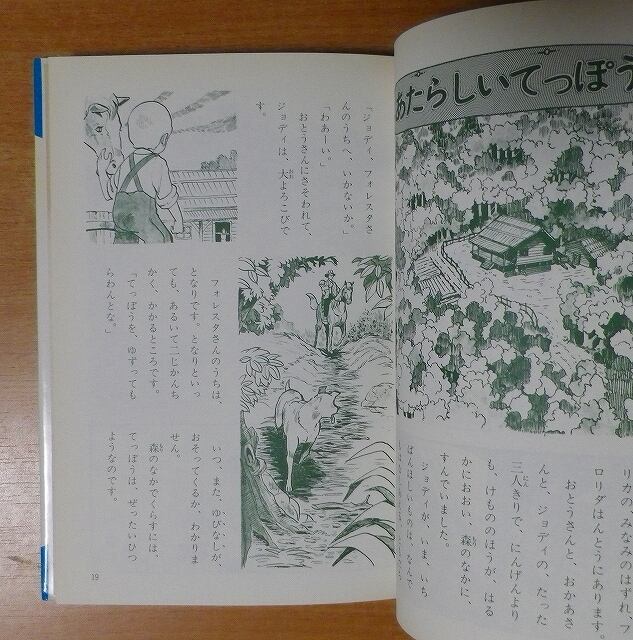 あたらしいてっぽう
リカのみなみのはずれ、フ
ロリダはんとうにあります。
おとうさんと、おかあさ
んと、ジョディの、たった
三人きりで、にんげんより
も、けもののほうが、はる
かにおおい森のなかに、
すんでいました。
ジョディが、いま、いち
ばんほしいものは、なんで
「ジョディ、フォレスタさ
んのうちへ、いかないか。」
「わあーい。」
おとうさんにさそわれて、
ジョディは、大よろこびで
す。
フォレスタさんのうちは、
となりです。となりといっ
ても、あるいて二じかんち
かく、かかるところです。
「てっぽうを、ゆずっても
らわんとな。」
いつ、また、ゆびなしが
おそってくるか、わかりま
せん。
森のなかでくらすには、
てっぽうは、ぜったいひつ
ようなのです。
19